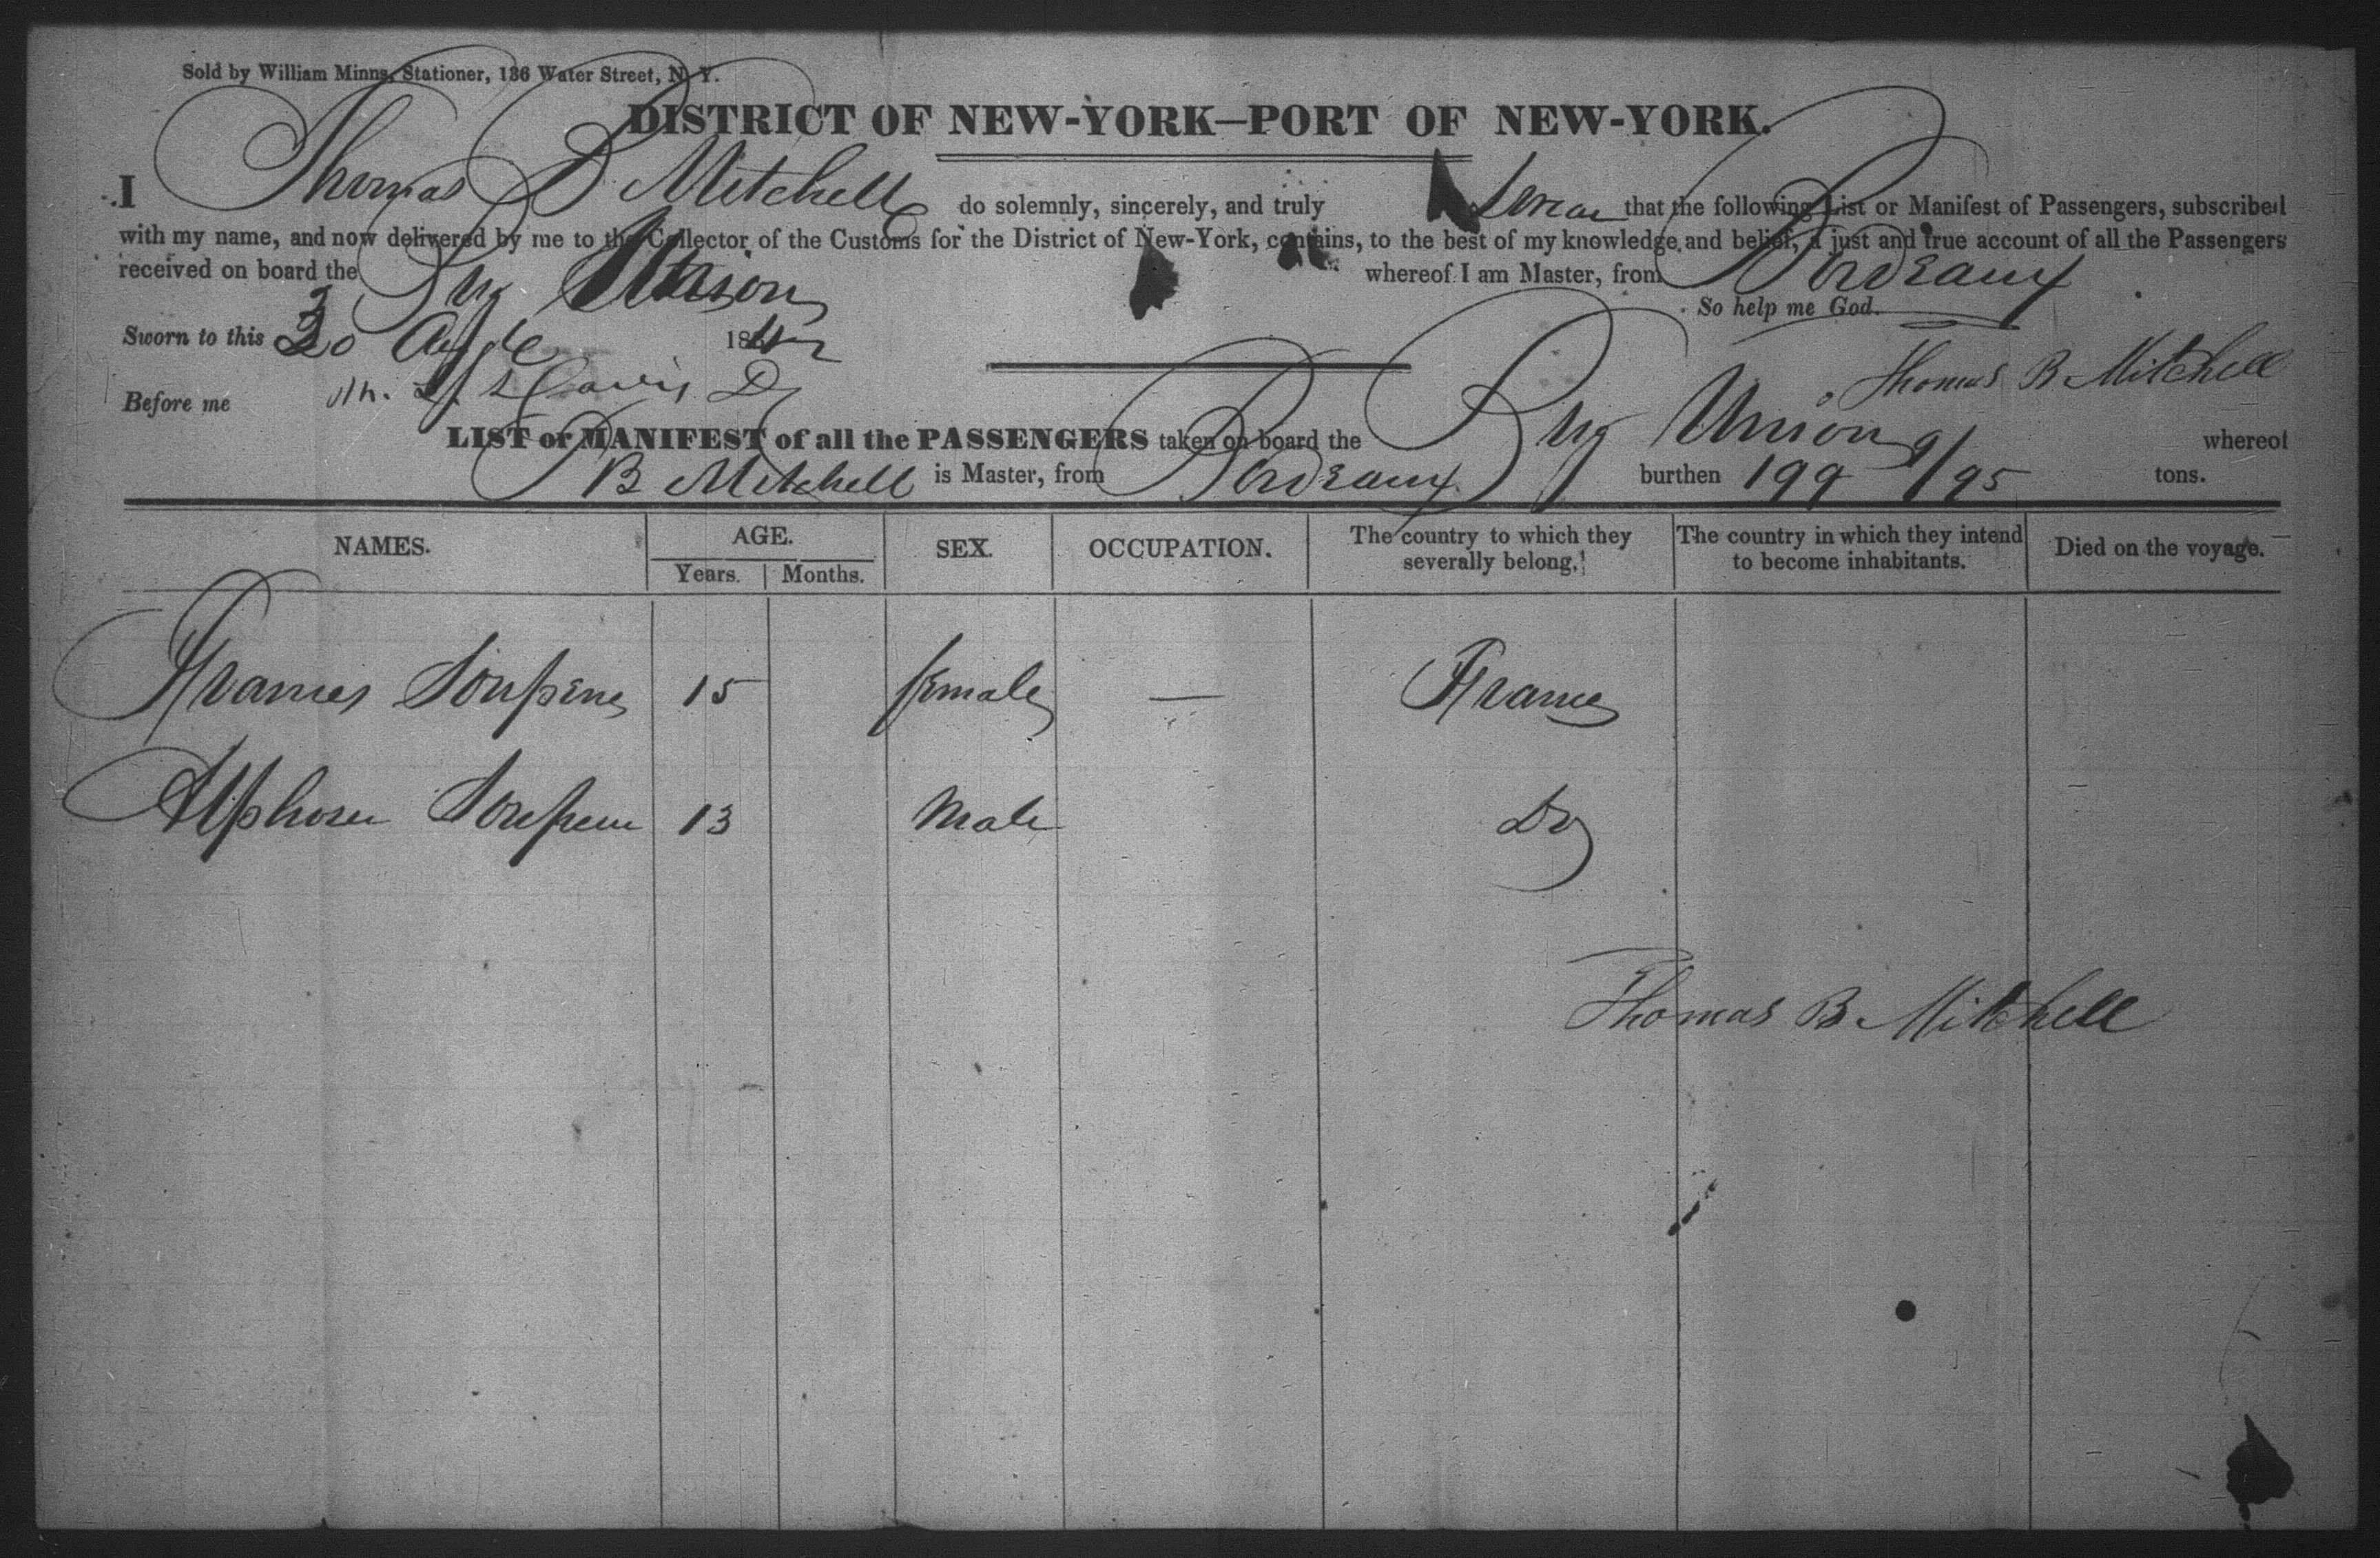 Sold by William Minns, Stationer, 136 Water Street, N. Y.
DISTRICT OF NEW-YORK—PORT OF NEW-YORK.
I Thomas B Mitchell do solemnly, sincerely, and truly Swear that the following List or Manifest of Passengers, subscribed
with my name, and now delivered by me to the Collector of the Customs for the District of New-York, contains, to the best of my knowledge and belief, a just and true account of all the Passengers
received on board the Brig Union whereof I am Master, from Bordeaux
So help me God.
Sworn to this 184
Thomas B Mitchell
Before me
LIST or MANIFEST of all the PASSENGERS taken on board the Brig Union whereof
B Mitchell is Master, from Bordeaux burthen 199 9/95 tons.
NAMES. AGE. SEX. OCCUPATION. The country to which they severally belong. The country in which they intend to become inhabitants. Died on the voyage.
Years. Months.
Frances 15 female — France
Alphonse 13 Male Do
Thomas B Mitchell